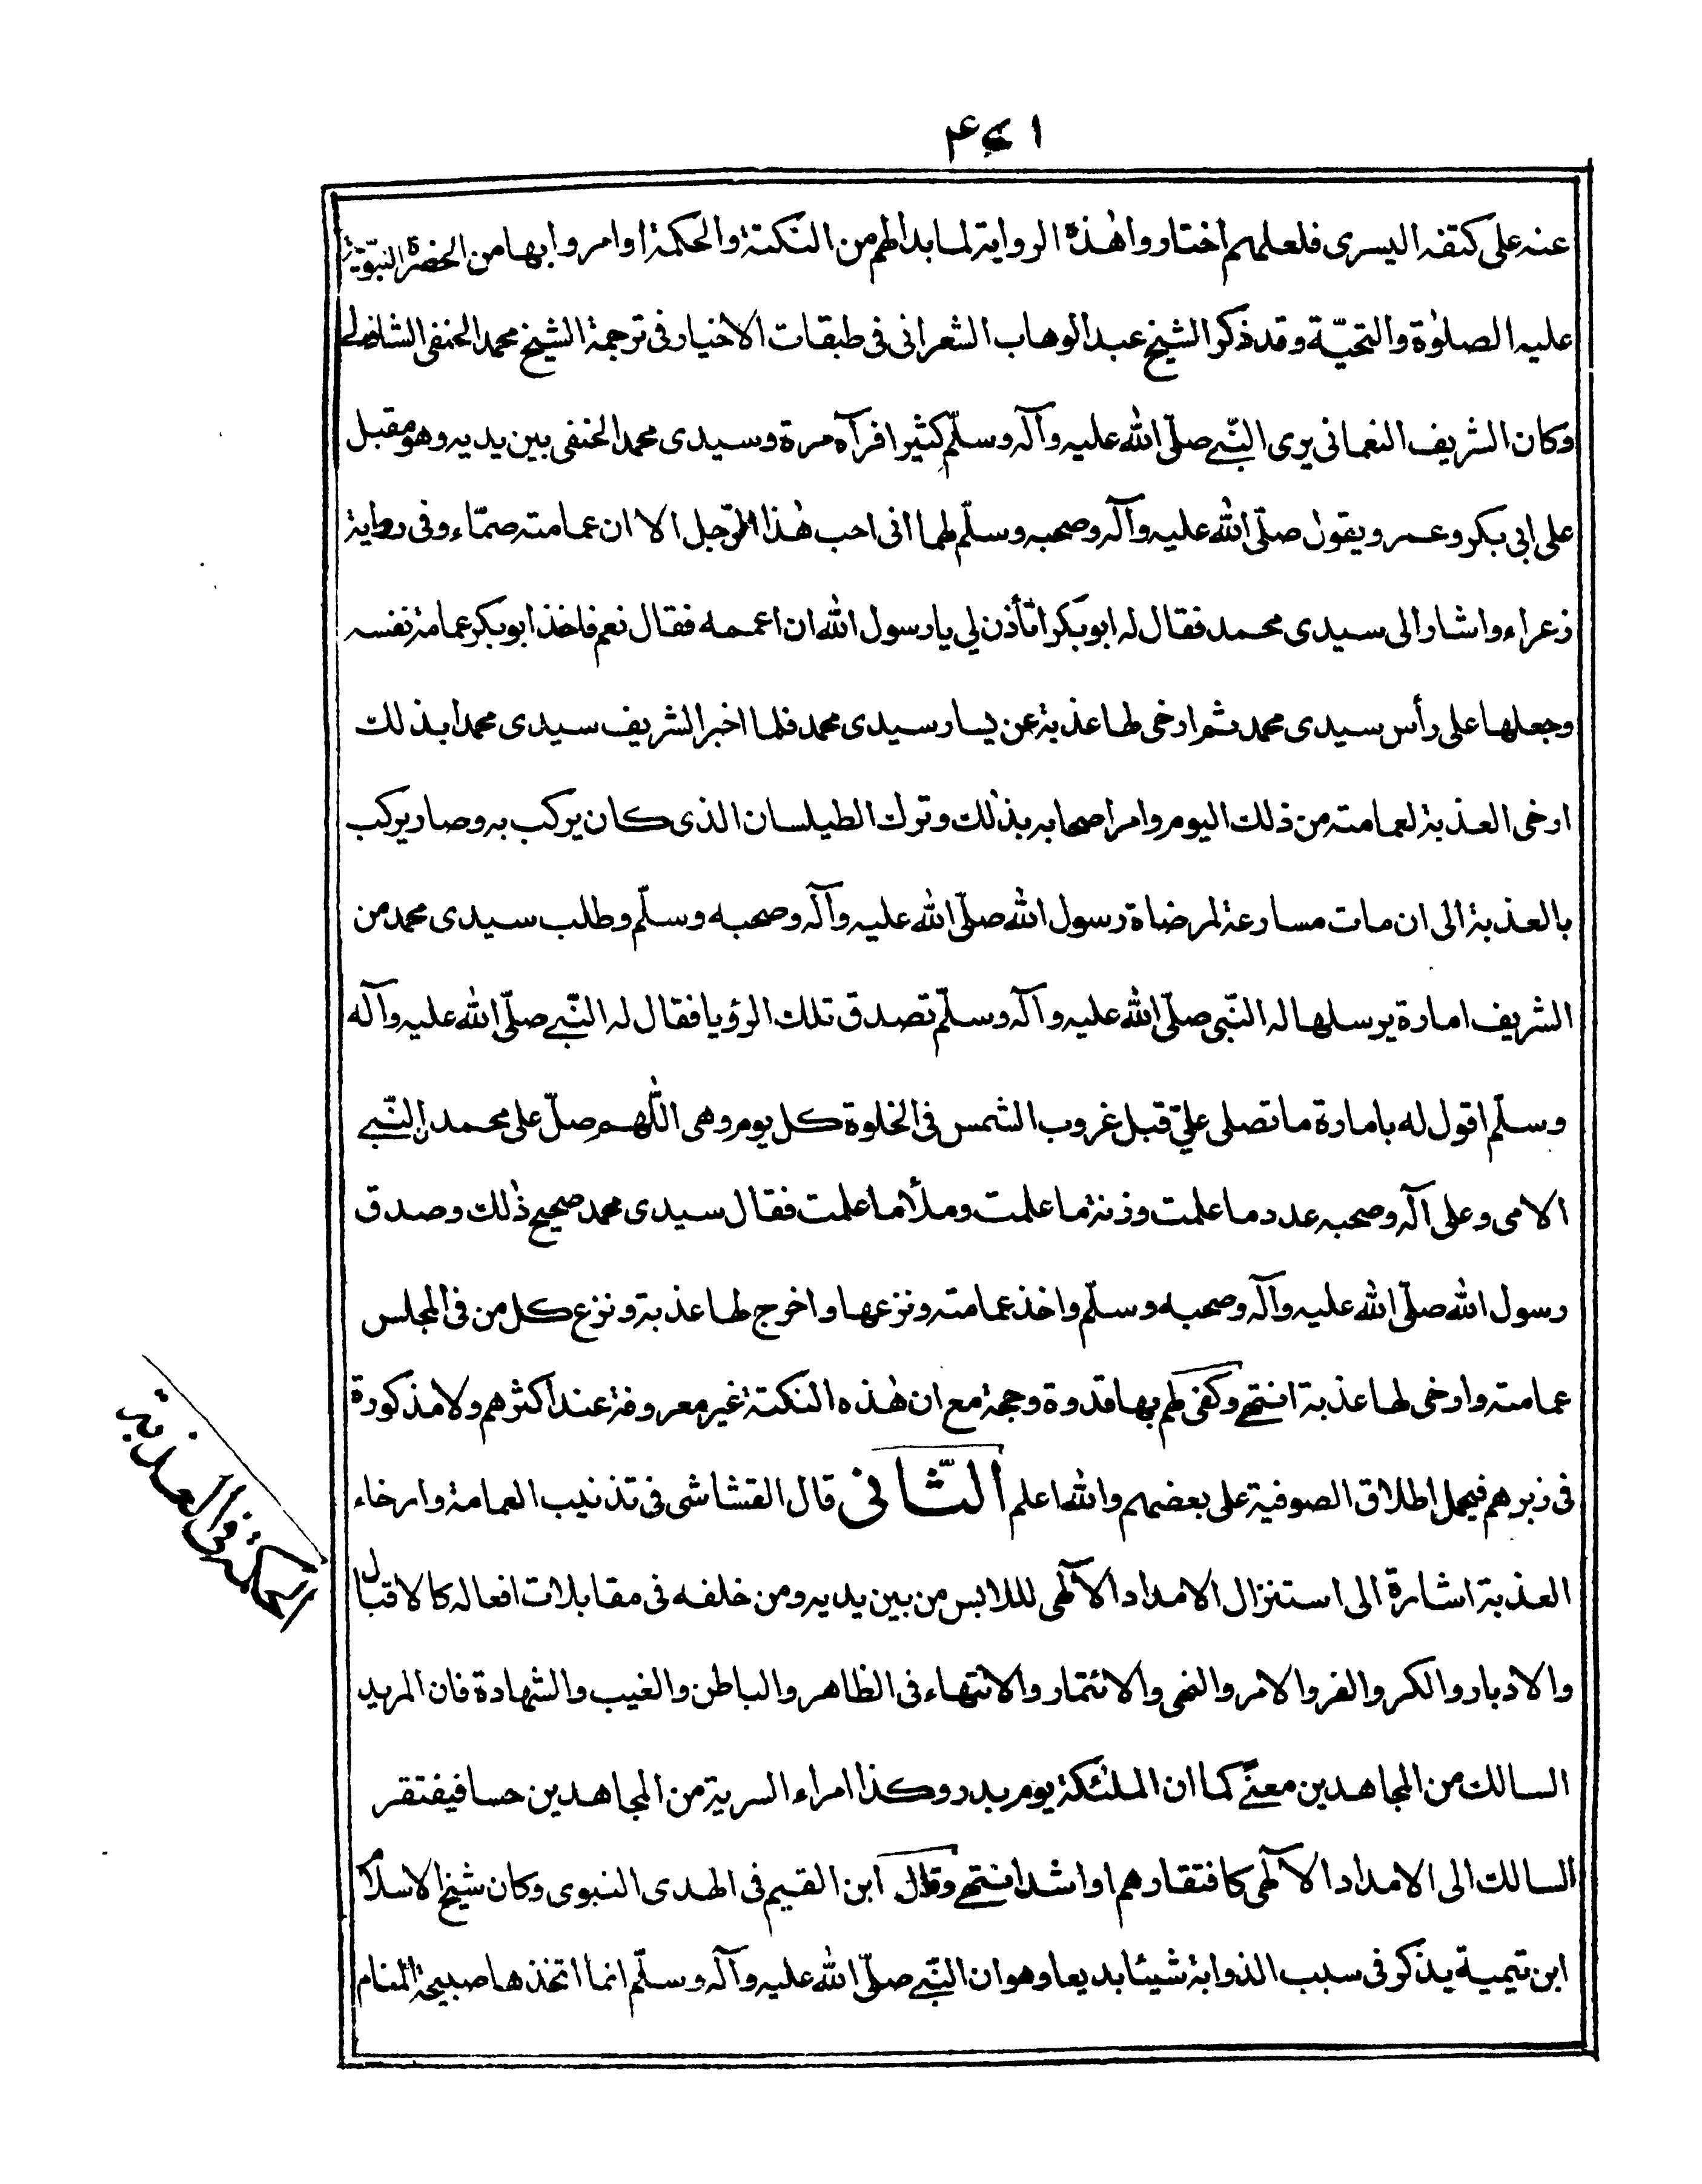 عنه على كتفه اليسرى فلعلهم اختاروا هٰذه الرواية لما بدا لهم من النكتة والحكمة او امروا بها من الحضرة النبوّية
عليه الصلوٰة والتحيّة وقد ذكر الشيخ عبد الوهاب الشعرانى فى طبقات الاخيار فى ترجمة الشيخ محمد الحنفى الشاذلے
وكان الشريف النعمانى يرى النّبے صلّى الله عليه وآله وسلّم كثيرا فرآه مرة وسيدى محمد الحنفى بين يديه وهو مقبل
على ابى بكر وعمر ويقول صلّى الله عليه وآله وصحبه وسلّم لهما انى احب هٰذا الرّجل الا ان عمامته صمّاء وفى رواية
زعراء واشار الى سيدى محمد فقال له ابو بكر اتأذن لي يا رسول الله ان اعممه فقال نعم فاخذ ابو بكر عمامة نفسه
وجعلها على رأس سيدى محمد ثم ارخى لها عذبة عن يسار سيدى محمد فلما اخبر الشريف سيدى محمدا بذلك
ارخى العذبة لعمامته من ذلك اليوم وامر اصحابه بذٰلك وترك الطيلسان الذى كان يركب به وصار يركب
بالعذبة الى ان مات مسارعة لمرضاة رسول الله صلّى الله عليه وآله وصحبه وسلّم وطلب سيدى محمد من
الشريف امارة يرسلها له النّبى صلّى الله عليه وآله وسلّم تصدق تلك الرؤيا فقال له النّبے صلّى الله عليه وآله
وسلّم اقول له بامارة ما تصلى عليّ قبل غروب الشمس فى الخلوة كل يوم وهى اللّهم صلّ على محمدن النّبے
الامى وعلى آله وصحبه عدد ما علمت وزنة ما علمت وملأ ما علمت فقال سيدى محمد صحيح ذٰلك وصدق
رسول الله صلّى الله عليه وآله وصحبه وسلّم واخذ عمامته ونزعها واخرج لها عذبة ونزع كل من فى المجلس
عمامته وارخى لها عذبة انتهے وكفى لهم بها قدوة وحجة مع ان هٰذه النكتة غير معروفة عند اكثرهم ولا مذكورة
فى زبرهم فيحمل اطلاق الصوفية على بعضهم والله اعلم الثّانى قال القشاشى فى تذنيب العمامة وارخاء
العذبة اشارة الى استنزال الامداد الآلهى لللابس من بين يديه ومن خلفه فى مقابلات افعاله كالاقبال
والادبار والكر والفر والامر والنهى والائتمار والانتهاء فى الظاهر والباطن والغيب والشهادة فان المريد
السالك من المجاهدين معنےً كما ان الملئكة يوم بدر وكذا امراء السرية من المجاهدين حسا فيفتقر
السالك الى الامداد الآلهى كافتقارهم او اشد انتهے وقال ابن القيم فى الهدى النبوى وكان شيخ الاسلام
ابن تيمية يذكر فى سبب الذوابة شيئا بديعا وهو ان النّبے صلّى الله عليه وآله وسلّم انما اتخذها صبيحة المنام
الحكمة فى العذبة